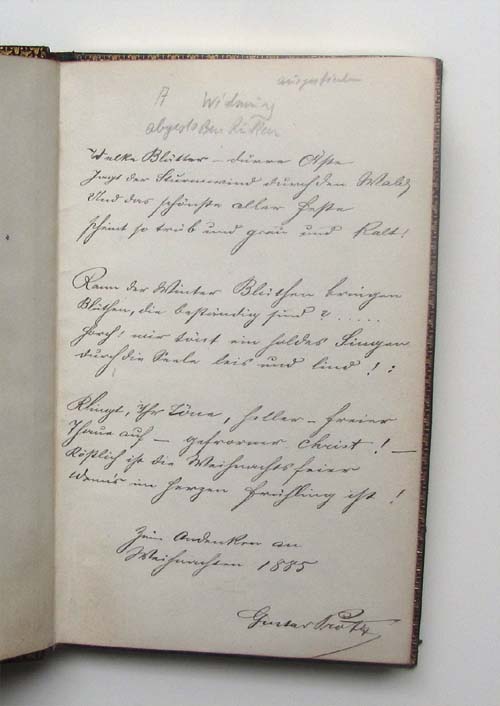 A Widmung
Welke Blätter – dürre Äste
Jagt der Sturmwind durch den Wald,
Und das schönste aller Feste
scheint so trüb und grau und kalt!
Kann der Winter Blüthen bringen
Blüthen, die beständig sind? .....
Horch! mir tönt ein holdes Singen
durch die Seele leis und lind!:
Klingt, Ihr Töne, heller – freier
Thaue auf – gefrorner Christ! –
Köstlich ist die Weihnachtsfeier
Wenn's im Herzen Frühling ist!
Zum Andenken an
Weihnachten 1885
Gustav